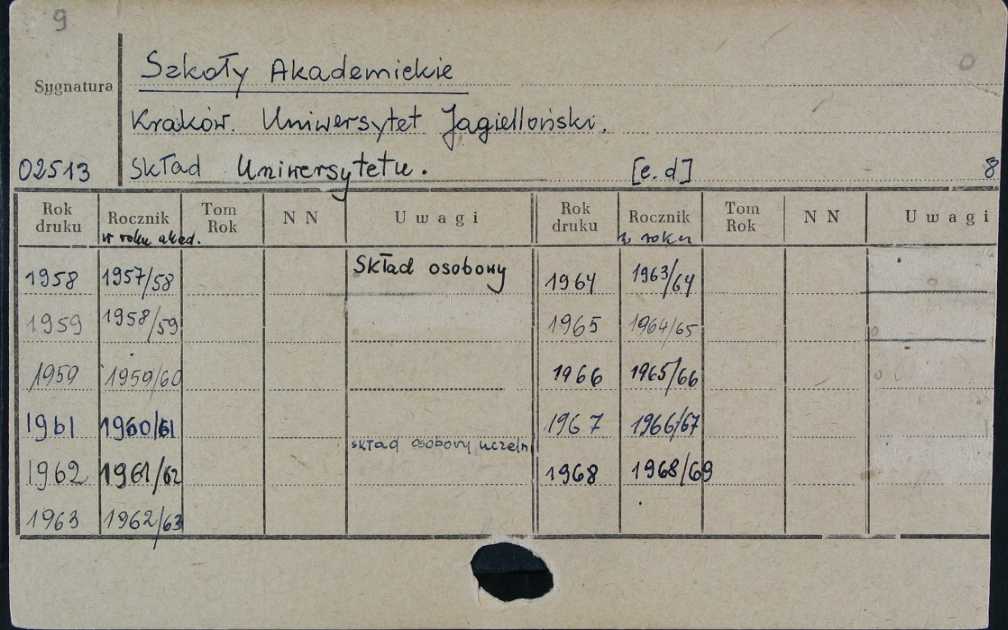 9
Szkoły Akademickie
Sygnatura
Kraków. Uniwersytet Jagielloński.
02513 Skład Uniwersytetu. [e.d] 8
Rok druku Rocznik w roku akad. Tom Rok N N Uwagi Rok druku Rocznik w roku Tom Rok N N Uwagi
1958 1957/58 Skład osobowy 1964 1963/64
1959 1958/59 1965 1964/65
1959 1959/60 1966 1965/66
1961 1960/61 1967 1966/67
skład osobowy uczelni
1962 1961/62 1968 1968/69
1963 1962/63